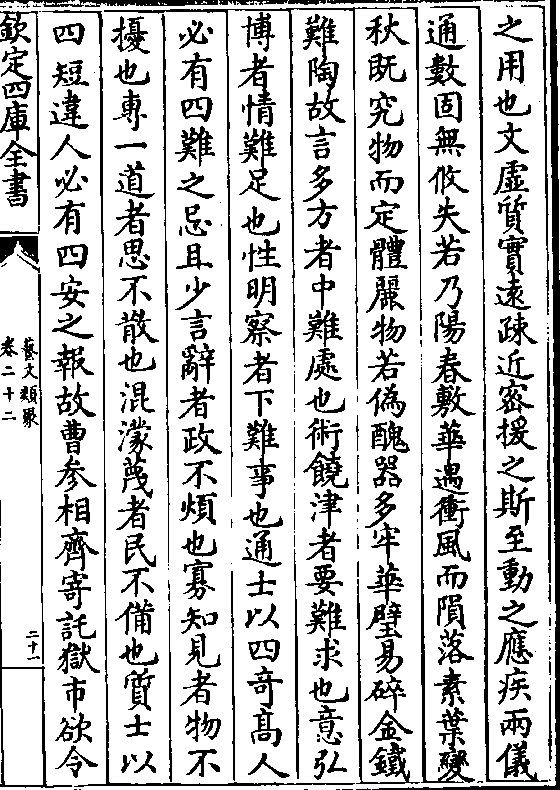 之用也文虛質實遠疎近密援之斯至動之應疾兩儀
通數固無攸失若乃陽春敷華遇衝風而隕落素葉變
秋既究物而定體麗物若偽醜器多牢華璧易碎金鐵
難陶故言多方者中難處也術饒津者要難求也意弘
博者情難足也性明察者下難事也通士以四竒髙人
必有四難之忌且少言辭者政不煩也寡知見者物不
擾也專一道者思不散也混濛蔑者民不備也質士以
四短違人必有四安之報故曹參相齊寄託獄市欲令
欽定四庫全書
藝文類聚
卷二十二
二十一